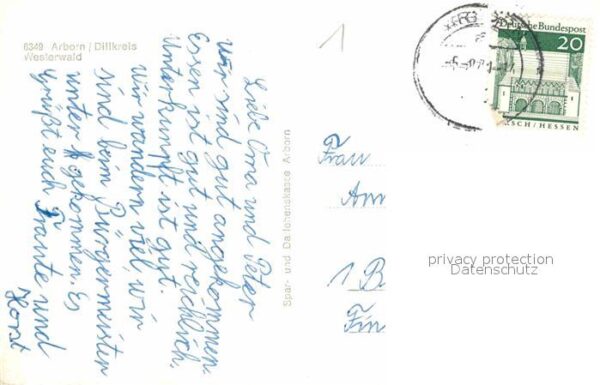 6349 Arborn / Dillkreis
Westerwald
Liebe Oma und Peter
Wir sind gut angekommen.
Essen ist gut und reichlich.
Unterkunft ist gut.
Wir wandern viel, wir
sind beim Bürgermeister
unter gekommen. Es
grüßt euch Frante und
Horst
Spar- und Darlehenskasse Arborn
1
Deutsche Bundespost
20
RSCH/HESSEN
Frau
Ann
1 B
Fin
privacy protection
Datenschutz